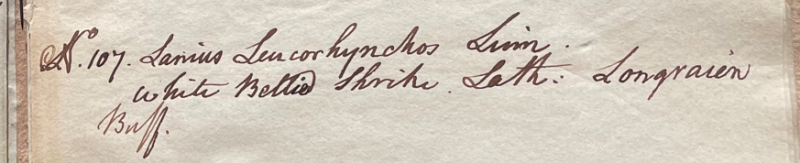 No. 107. Lanius Leucorhynchos Linn.
white Bellied Shrike. Lath: Longraien
Buff.